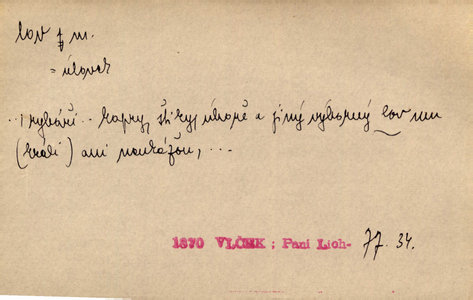 lov m.
= úlovek
..., rybáři .. kapry, štiky, úhoře a jiný výborný lov mu
(králi) ani neukážou, ...
1870 VLČEK ; Paní Lich- 77. 34.